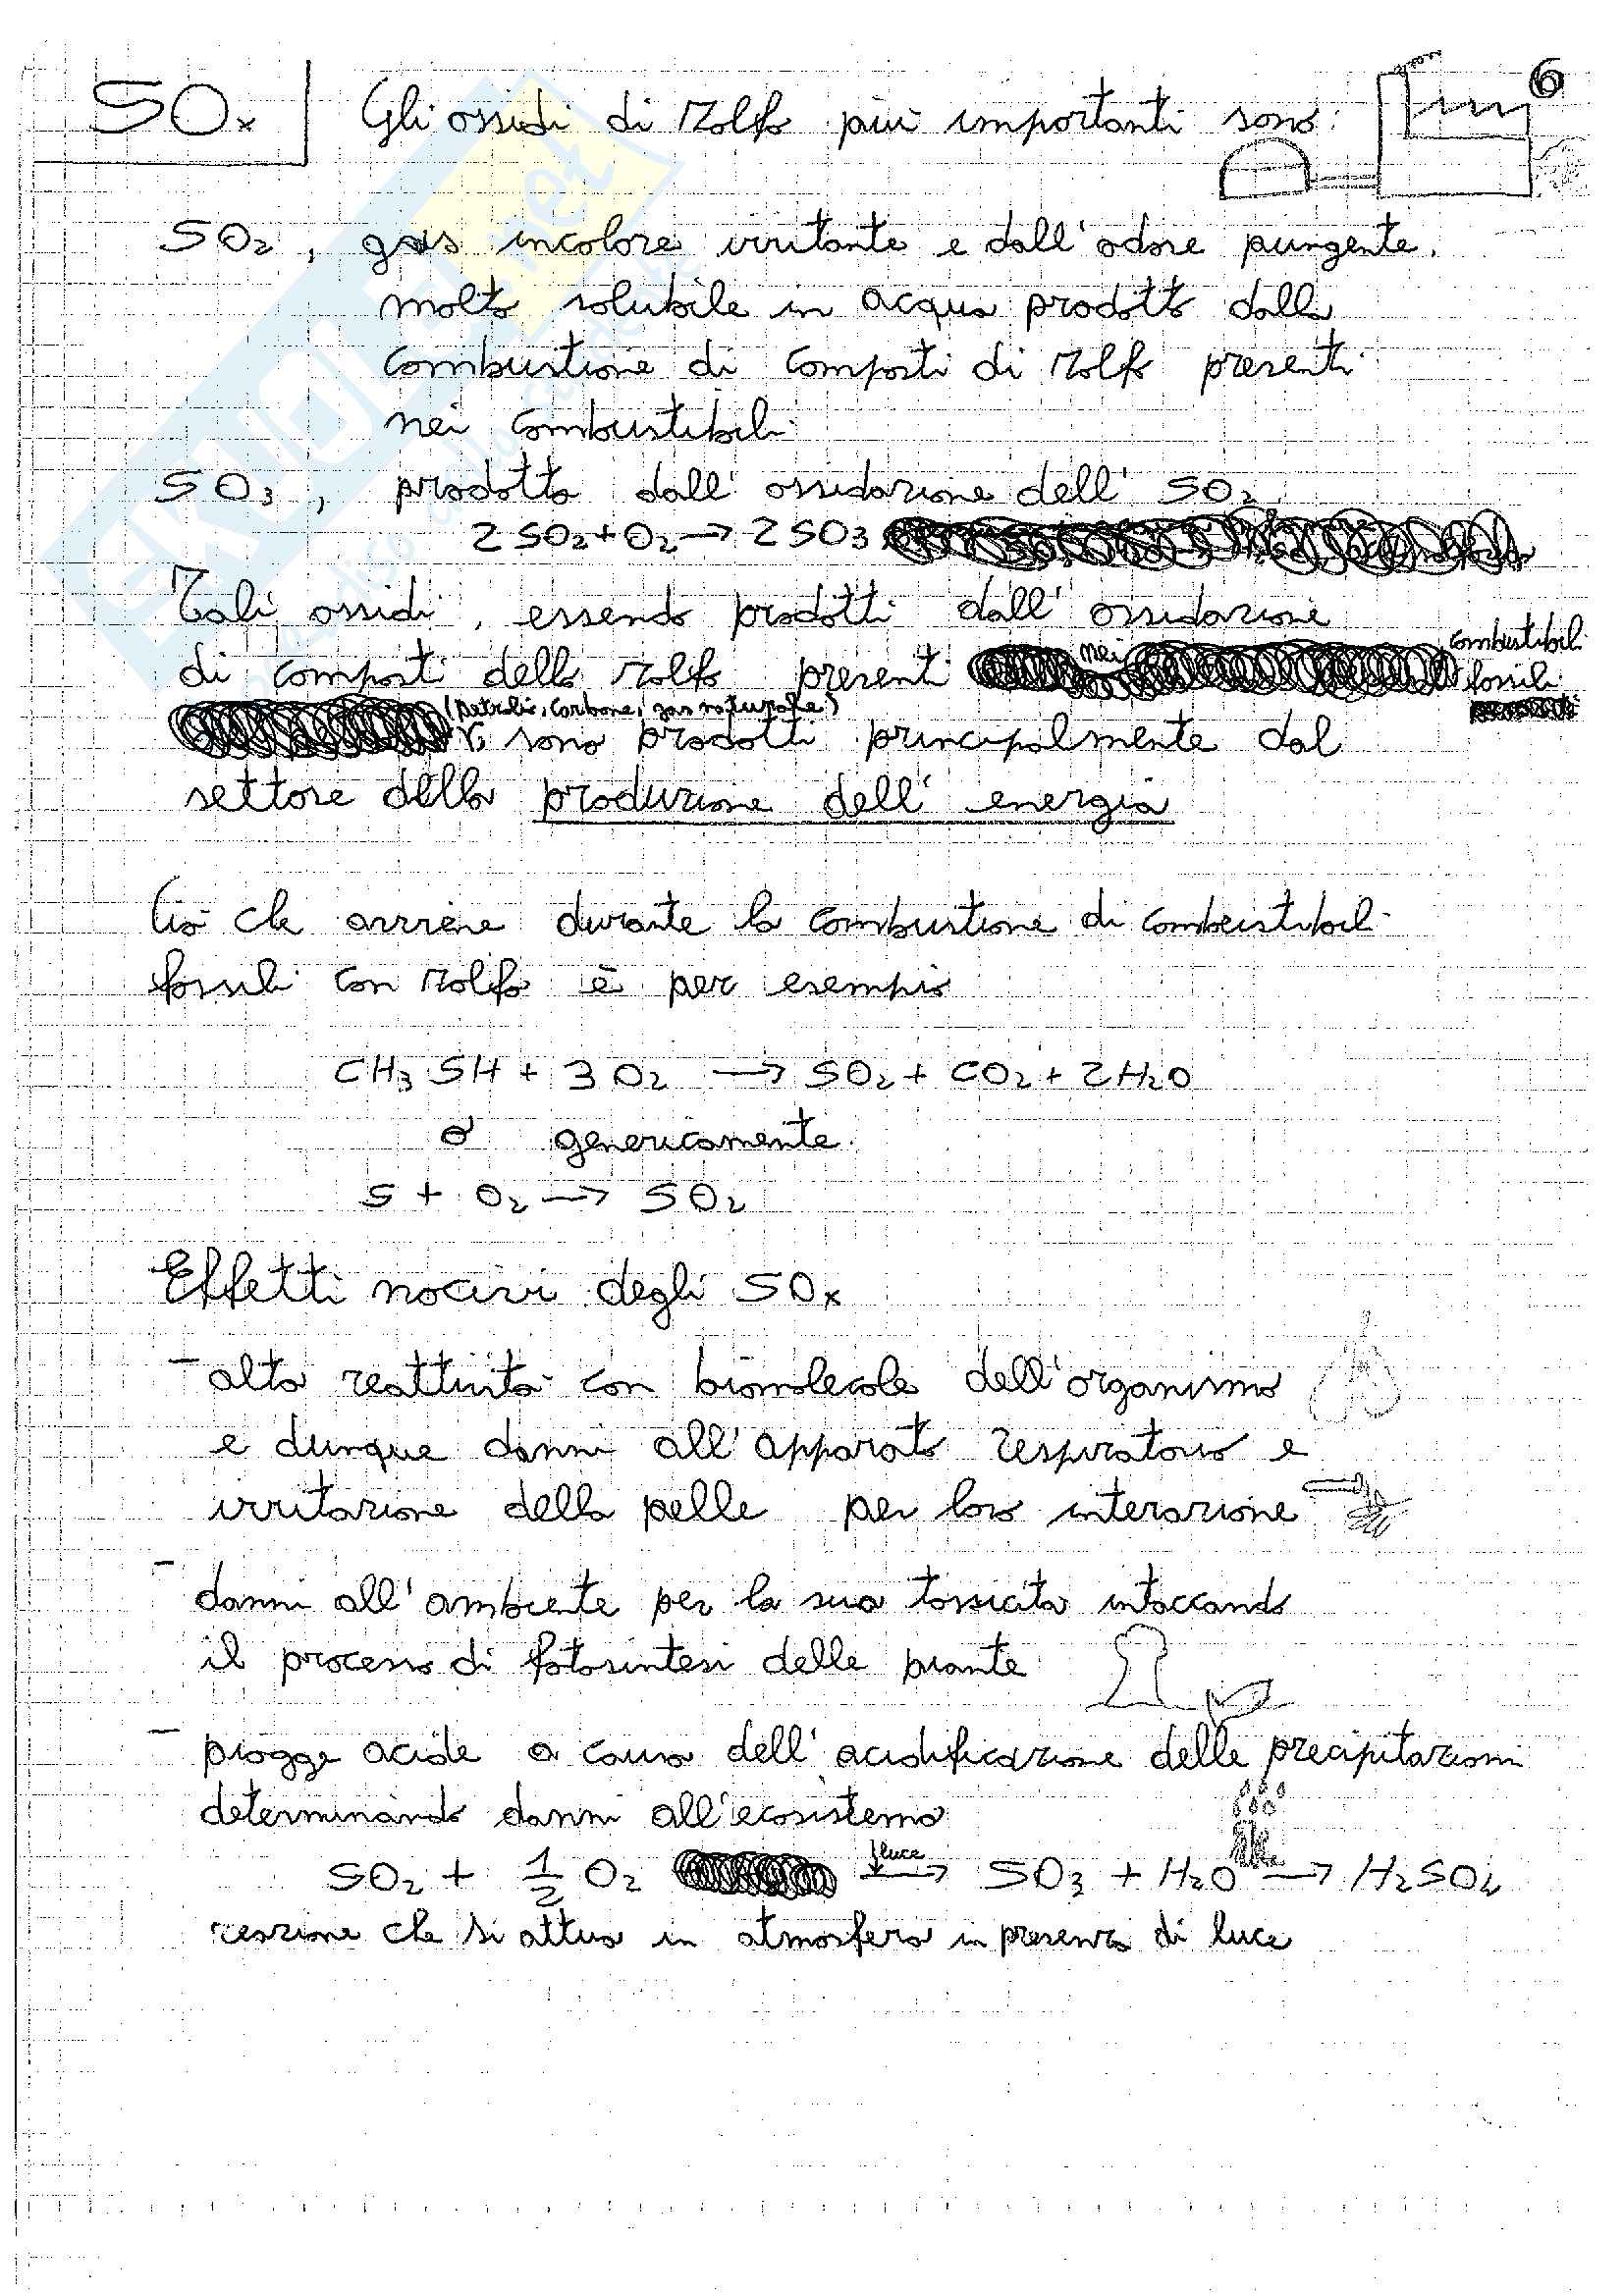 6
SOx Gli ossidi di zolfo più importanti sono:
SO2, gas incolore irritante e dall'odore pungente.
molto solubile in acqua prodotto dalla
combustione di composti di zolfo presenti
nei combustibili
SO3, prodotto dall'ossidazione dell'SO2
2SO2+O2→2SO3
Tali ossidi, essendo prodotti dall'ossidazione
di composti dello zolfo presenti nei combustibili
fossili
(petrolio, carbone, gas naturale)
sono prodotti principalmente dal
settore della produzione dell'energia
Ciò che avviene durante la combustione di combustibili
fossili con zolfo è per esempio
CH3SH + 3O2 → SO2 + CO2 + 2H2O
o genericamente
S + O2 → SO2
Effetti nocivi degli SOx
- alta reattività con biomolecole dell'organismo
e dunque danni all'apparato respiratorio e
irritazione della pelle per loro interazione
- danni all'ambiente per la sua tossicità intaccando
il processo di fotosintesi delle piante
- piogge acide a causa dell'acidificazione delle precipitazioni
determinando danni all'ecosistema
luce
SO2 + 1/2 O2 → SO3 + H2O → H2SO4
reazione che si attua in atmosfera in presenza di luce